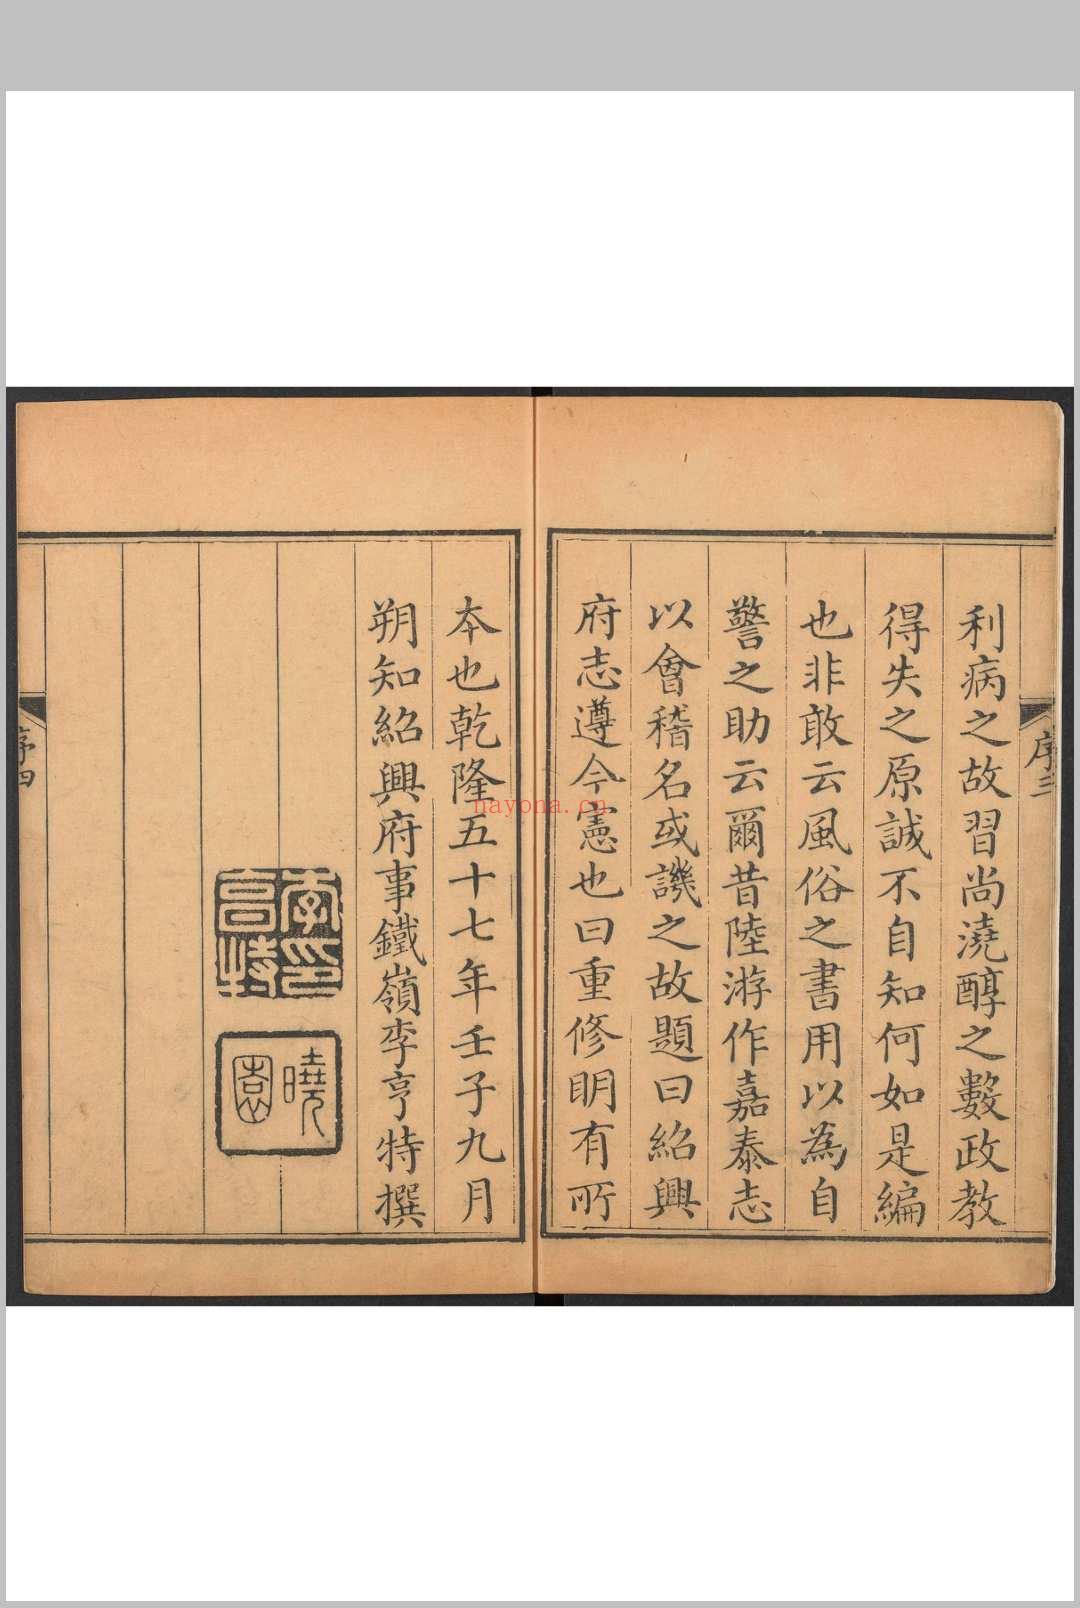 利病之故習尚澆醇之數政教
得失之原誠不自知何如是編
也非敢云風俗之書用以為自
警之助云爾昔陸游作嘉泰志
以會稽名或譏之故題曰紹興
府志遵今憲也曰重修明有所
序三
本也乾隆五十七年壬子九月
朔知紹興府事鐵嶺李亨特撰
李印亨特
曉園
序四
nayona.cn